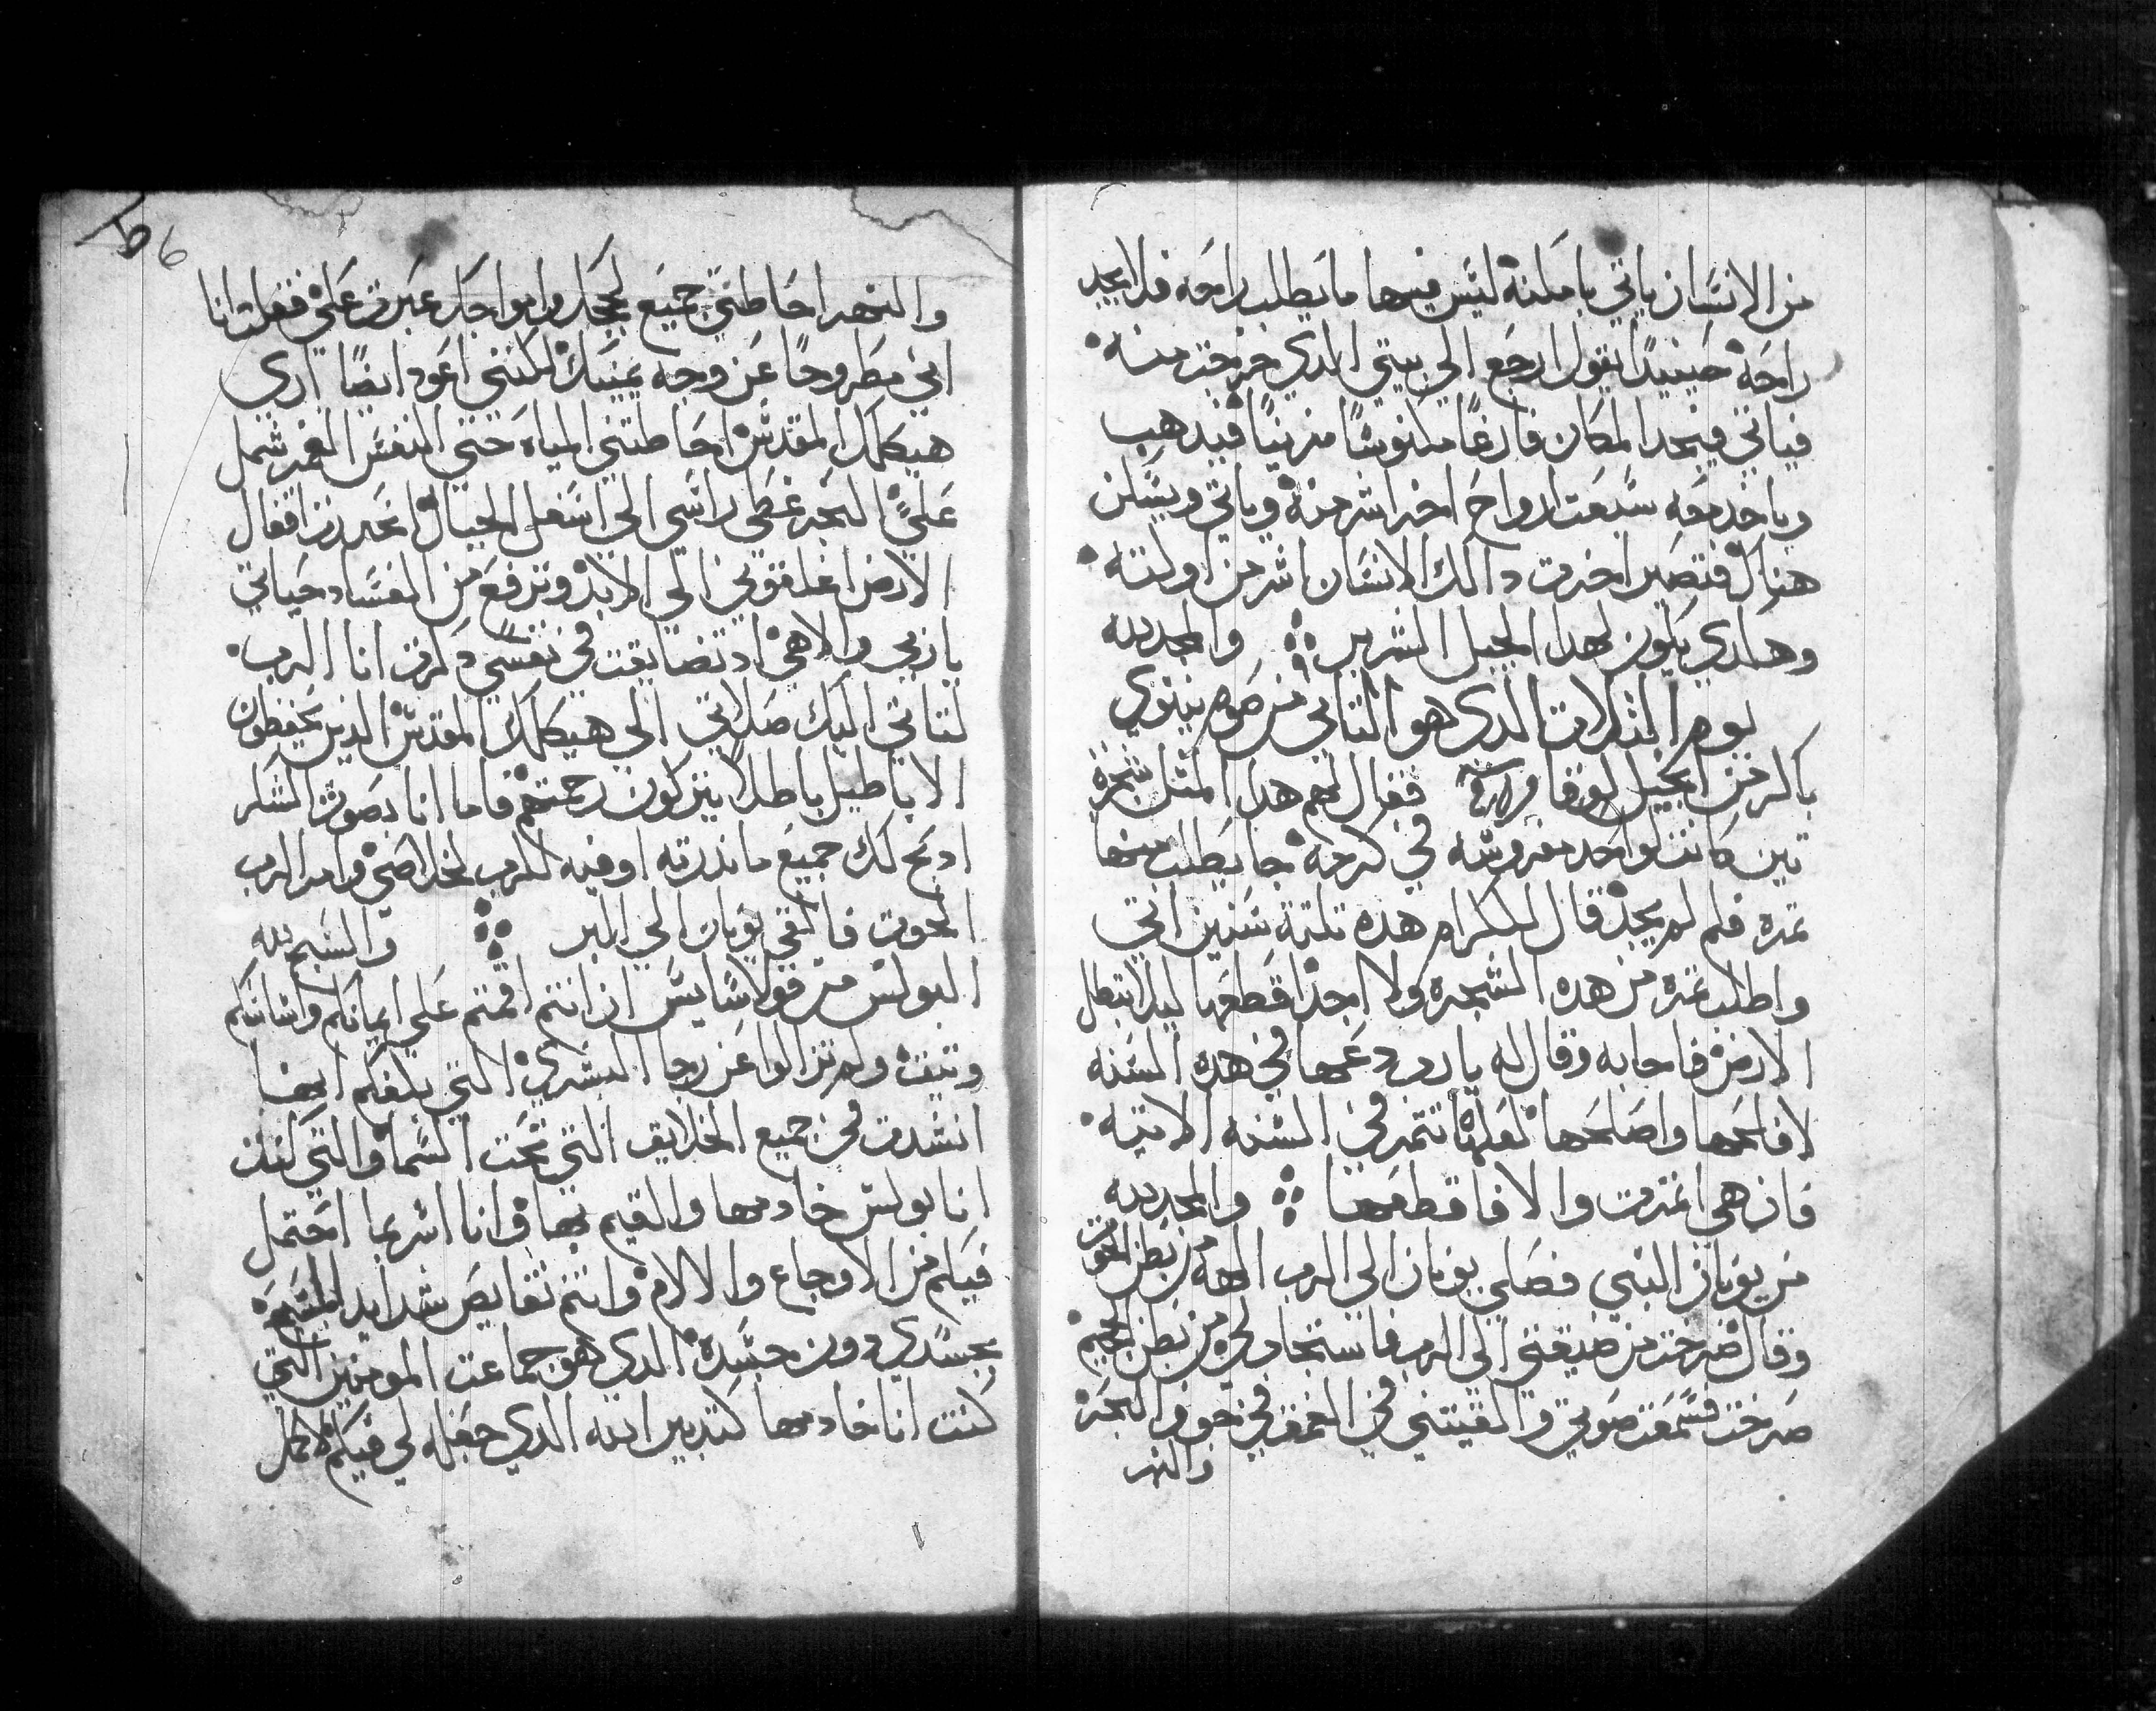 من الانسان ياتي بامكنة ليس فيها ما يطلب راحه فلا يجد
راحة حينيدا يقول ارجع الي بيتي الدي خرجت منه
فياتي فيجد المكان فارغا مكنوسا مزينا فيدهب
وياخد معه سبعت ارواح اخر اشر منه وياتي ويسكن
هناك فتصير اخرت دالك الانسان اشر من اولته
وهكدي يكون لهدا الجيل الشرير والمجد لله
يوم التلات الدي هو التاني من صوم نينوي
باكر من انجيل لوقا فقال لهم هدا المتل شجرة
تين كانت لواحد مغروسه في كرمه جا يطلب منها
تمره فلم لم يجد قال للكرام هده تلتة سنين اتي
واطلب تمره من هده الشجره ولا اجد اقطعها ليلا تبطل
الارض فاجابه وقال له يا رب دعها في هده السنه
لافلحها واصلحها لعلها تتمر في السنه الاتيه
فان هي اتمرت والا فاقطعها والمجد لله
من يونان النبي فصلي يونان الي الرب الهه من بطن الحوت
وقال صرخت من ضيقتي الي الرب فاستجاب لي من بطن الجحيم
صرخت فسمعت صوتي والقيتني في العمق في جوف البحر
والنهر
6
والنهر احاطني جميع لججك وامواجك عبرت علي فقلت انا
اني مطروحا عن وجه عينيك لكنني اعود ايضا اري
هيكلك المقدس احاطتني المياه حتي النفس الغمر شمل
علي البحر غطي راسي الي اسفل الجبال انحدرت اقفال
الارض اغلقوني الي الابد وترفع من الفساد حياتي
يا ربي والاهي اد تضايقت في نفسي دكرت انا الرب
لتاتي اليك صلاتي الي هيكلك المقدس الدين يحفظون
الاباطيل باطلا يتركون رحمتهم فاما انا بصوت الشكر
ادبح لك جميع ما ندرته اوفيه للرب لخلاصي وامر الرب
الحوت فالقي يونان الي البر والسبح لله
البولس من قولاسايس ان انتم اقمتم علي ايمانكم واساسكم
وتيق ولم تزالوا عن رجا البشري التي بلغكم انها
انشدت في جميع الخلايق التي تحت السما والتي كنت
انا بولس خادمها والقيم بها وانا اسر بما احتمل
فيكم من الاوجاع والالام وانتم نقايص شدايد المسيح
بجسدي دون جسده الدي هو جماعت المومنين التي
كنت انا خادمها كتدبير الله الدي جعله لي فيكم لاكمل